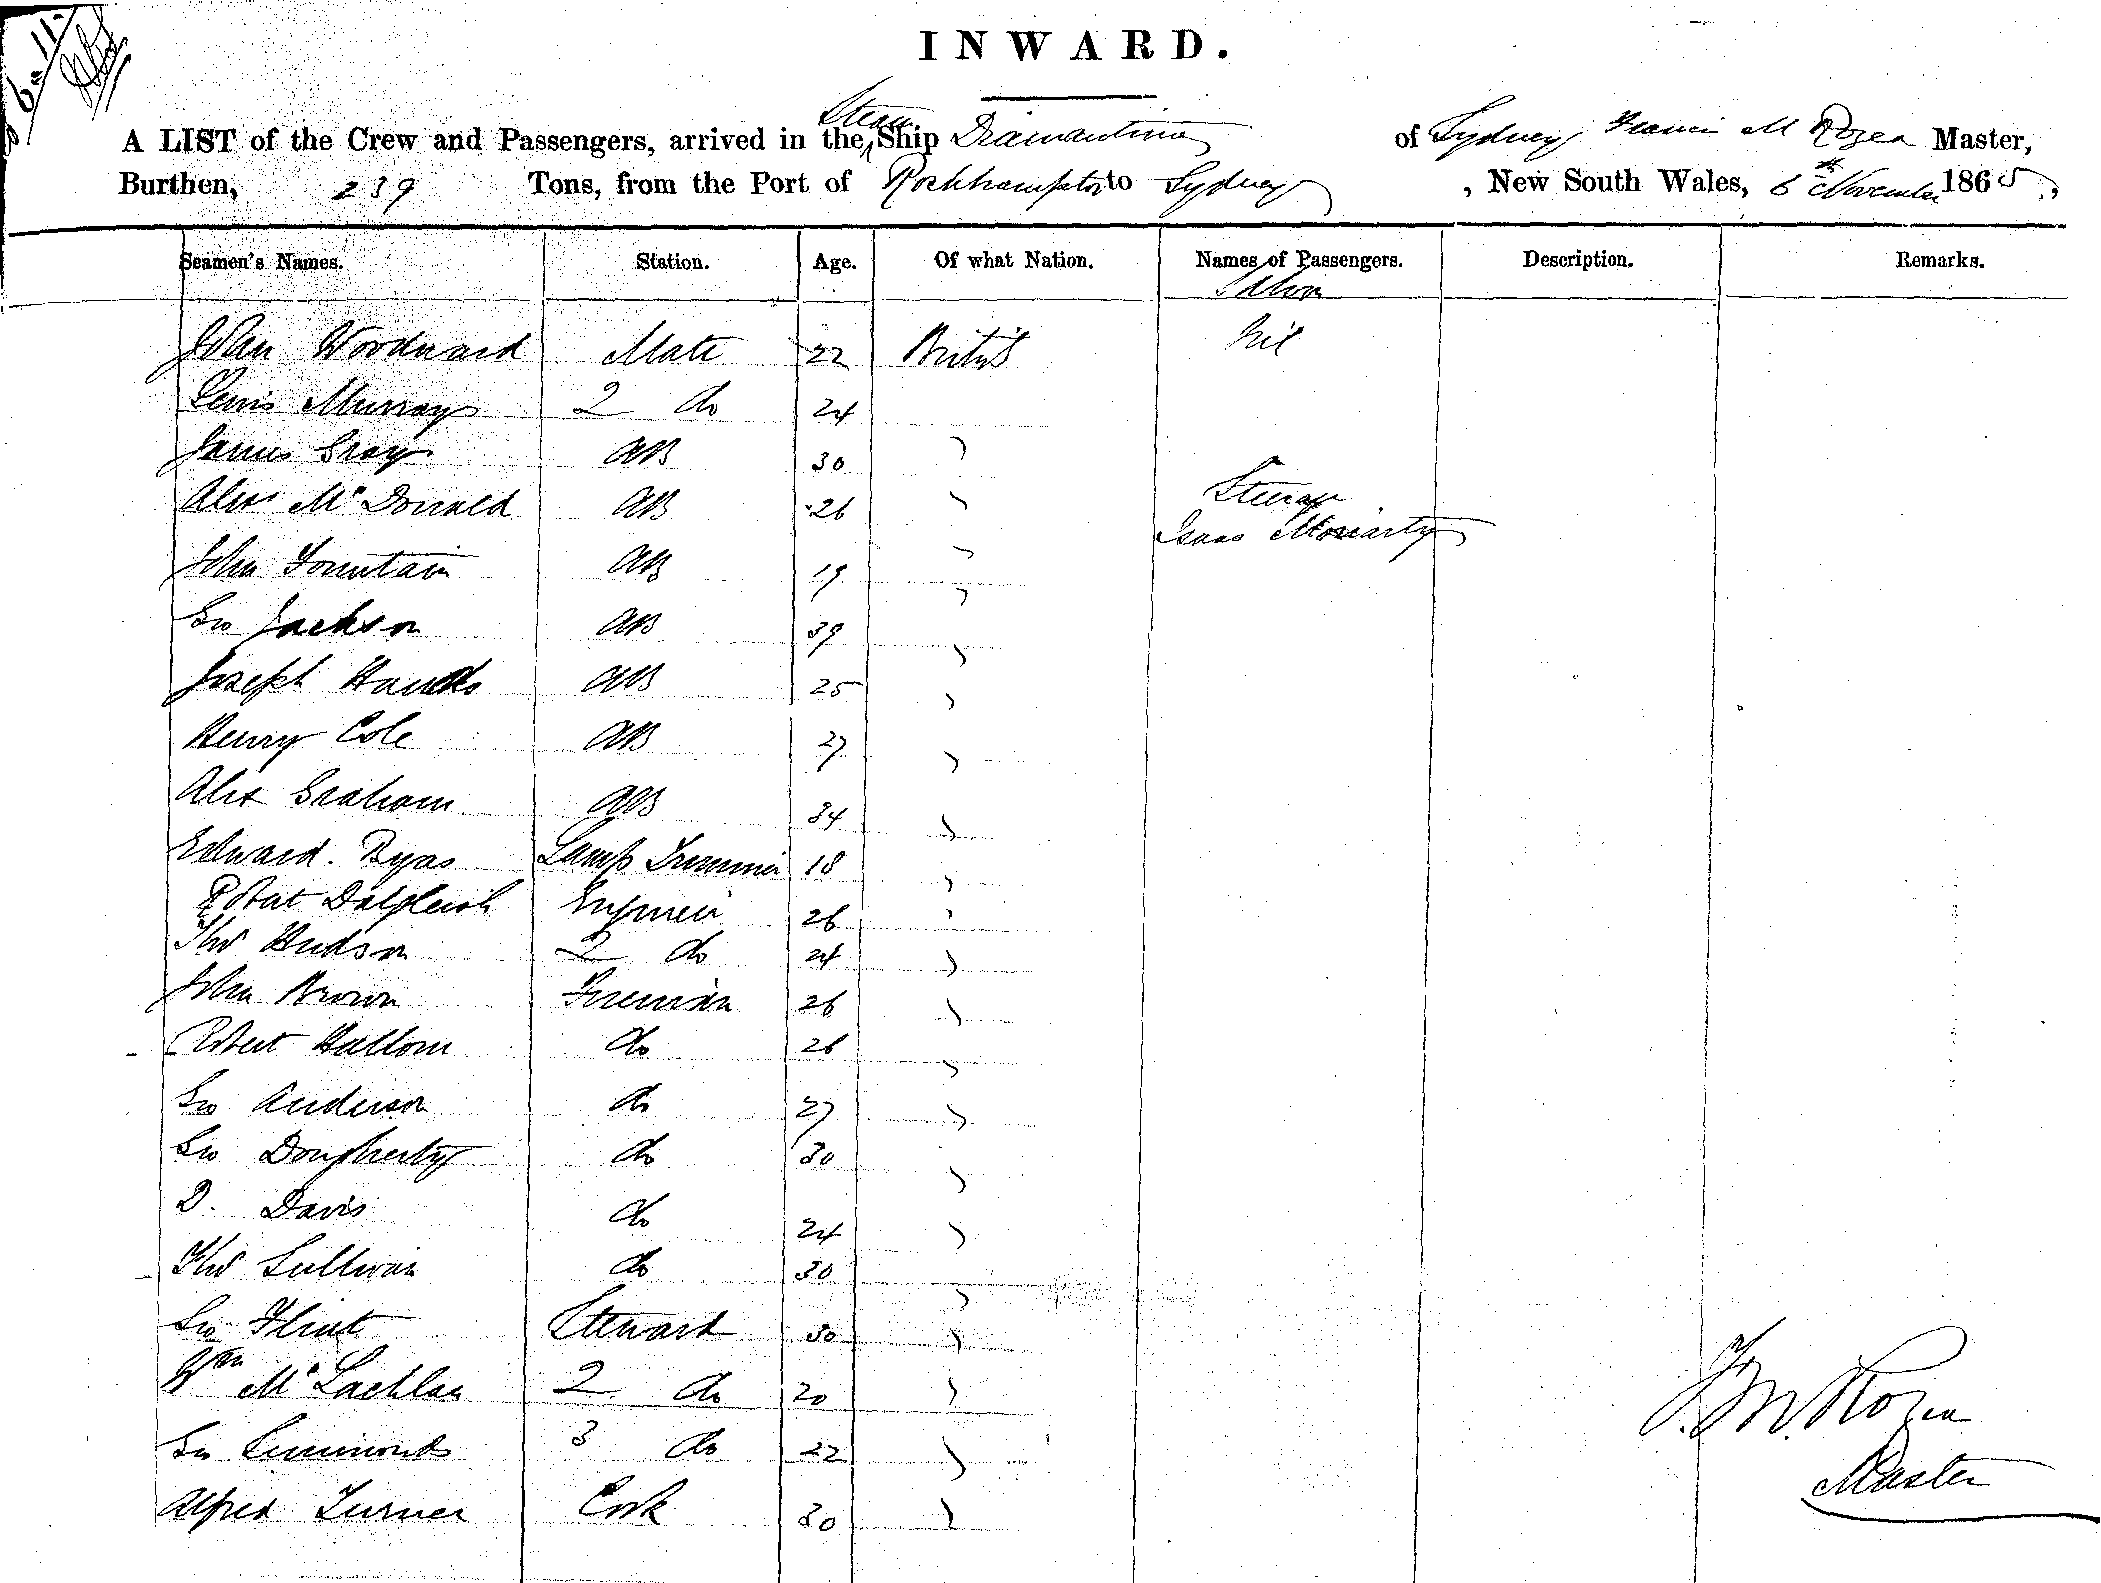 6 - 11.
INWARD.
A LIST of the Crew and Passengers, arrived in the Steam Ship Diamantina of Sydney Francis M Rozea Master,
Burthen, 239 Tons, from the Port of Rockhampton to Sydney, New South Wales, 6th November 1865,
Seamen's Names. Station. Age. Of what Nation. Names of Passengers. Description. Remarks.
Saloon
John Woodward Mate 22 British Nil
Lewis Murray 2 do 24
James Gray AB 30 "
Steerage
Alex McDonald AB 26 "
Isaac Moriarty
John Fountain AB 19 "
Geo Jackson AB 39 "
Joseph Hands AB 25 "
Henry Cole AB 27 "
Alex Graham AB 34 "
Edward. Dyas Lamp Trimmer 18 "
Robert Dalgleish Engineer 26 "
Thos Hudson 2 do 24 "
John Brown Fireman 26 "
Robert Hallom do 26 "
Geo Anderson do 27 "
Geo Dougherty do 30 "
D. Davis do 24 "
Thos Sullivan do 30 "
Geo Flint Steward 30 "
Wm McLachlan 2 do 20 "
Geo Simmonds 3 do 22 "
Alfred Turner Cook 30 "
F. M. Rozea
Master